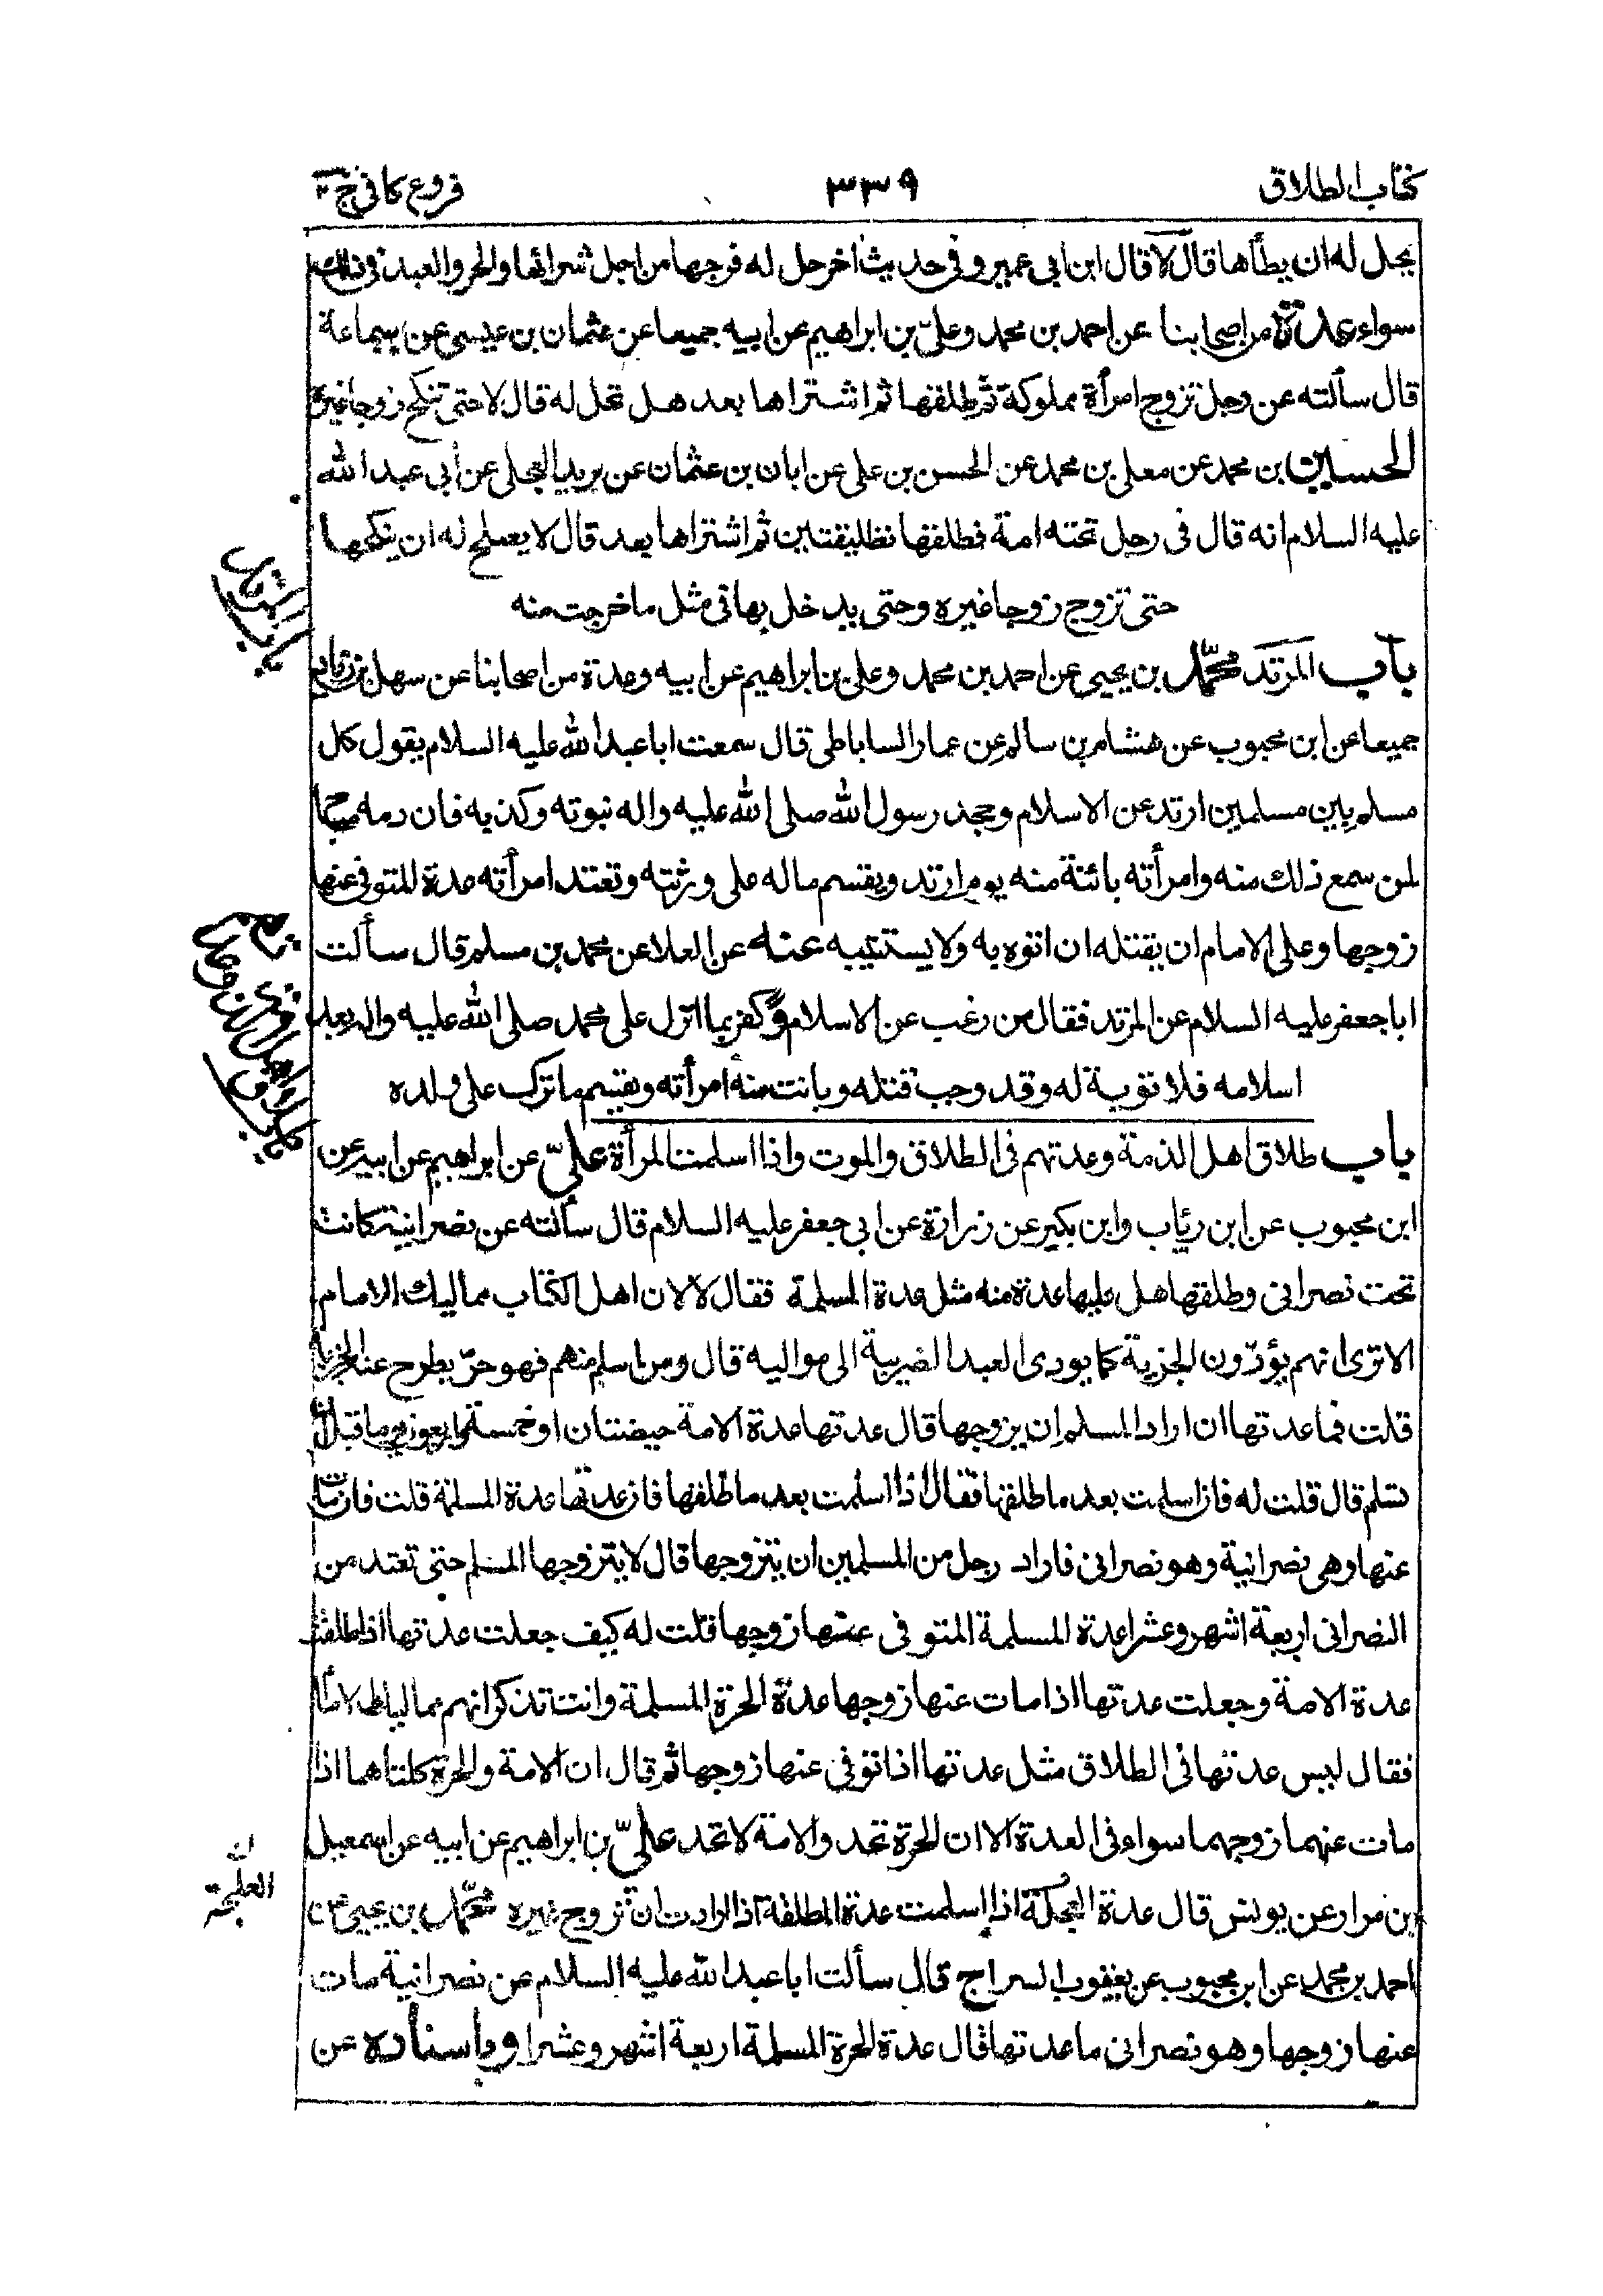 كتاب الطلاق
٣٣٩
فروع كافى ج ٢
يحل له ان يطأها قال لا قال ابن ابى عمير و فى حديث اخر حل له فرجها من اجل شرائها والحر والعبد فى ذلك
سواء عدة من اصحابنا عن احمد بن محمد وعلىّ بن ابراهيم عن ابيه جميعا عن عثمان بن عيسى عن سماعة
قال سألته عن رجل تزوج امرأة مملوكة ثم طلقها ثم اشتراها بعد هل تحل له قال لا حتى تنكح زوجا غيره
الحسين بن محمد عن معلى بن محمد عن الحسن بن على عن ابان بن عثمان عن بريد العجلى عن أبى عبد الله
عليه السلام انه قال فى رجل تحته امة فطلقها تطليقتين ثم اشتراها بعد قال لا يصلح له ان ينكحها
حتى تزوج زوجا غيره وحتى يدخل بها فى مثل ما خرجت منه
باب المرتد محمّد بن يحيى عن احمد بن محمد وعلى بن ابراهيم عن ابيه وعدة من اصحابنا عن سهل بن زياد
جميعا عن ابن محبوب عن هشام بن سالم عن عمار الساباطى قال سمعت ابا عبد الله عليه السلام يقول كل
مسلم بين مسلمين ارتد عن الاسلام وجحد رسول الله صلى الله عليه واله نبوته وكذبه فان دمه مباح
لمن سمع ذلك منه وامرأته بائنة منه يوم ارتد ويقسم ماله على ورثته وتعتد امرأته عدة المتوفى عنها
زوجها وعلى الامام ان يقتله ان اتوه به ولا يستتيبه عنه عن العلا عن محمد بن مسلم قال سألت
ابا جعفر عليه السلام عن المرتد فقال من رغب عن الاسلام وكفر بما انزل على محمد صلى الله عليه واله بعد
اسلامه فلا توبة له وقد وجب قتله وبانت منه امرأته ويقسم ما ترك على ولده
باب طلاق اهل الذمة وعدتهم فى الطلاق والموت واذا اسلمت المرأة علىّ عن ابراهيم عن ابيه عن
ابن محبوب عن ابن رئاب وابن بكير عن زرارة عن ابى جعفر عليه السلام قال سألته عن نصرانية كانت
تحت نصرانى وطلقها هل عليها عدة منه مثل عدة المسلمة فقال لا لان اهل الكتاب مماليك الامام
الا ترى انهم يؤدّون الجزية كما يودى العبد الضريبة الى مواليه قال ومن اسلم منهم فهو حرّ يطرح عنه الجزية
قلت فما عدتها ان اراد المسلم ان يزوجها قال عدتها عدة الامة حيضتان او خمسة واربعون يوما قبل ان
تسلم قال قلت له فان اسلمت بعد ما طلقها فقال اذا اسلمت بعد ما طلقها فان عدتها عدة المسلمة قلت فان مات
عنها وهى نصرانية وهو نصرانى فاراد رجل من المسلمين ان يتزوجها قال لا يتزوجها المسلم حتى تعتد من
النصرانى اربعة اشهر وعشرا عدة المسلمة المتوفى عنها زوجها قلت له كيف جعلت عدتها اذا طلقت
عدة الامة وجعلت عدتها اذا مات عنها زوجها عدة الحرة المسلمة وانت تذكر انهم مماليك الامام
فقال ليس عدتها فى الطلاق مثل عدتها اذا توفى عنها زوجها ثم قال ان الامة والحرة كلتاهما اذا
مات عنهما زوجهما سواء فى العدة الا ان الحرة تحد والامة لا تحد علىّ بن ابراهيم عن ابيه عن اسمعيل
بن مرار عن يونس قال عدة العلجة اذا اسلمت عدة المطلقة اذا ارادت ان تزوج غيره محمّد بن يحيى عن
احمد بن محمد عن ابن محبوب عن يعقوب السراج قال سألت ابا عبد الله عليه السلام عن نصرانية مات
عنها زوجها وهو نصرانى ما عدتها قال عدة الحرة المسلمة اربعة اشهر وعشرا و باسناده عن
باب المرتد
العلجة